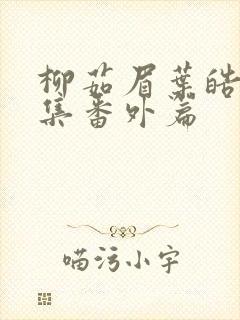 柳茹眉葉皓
集番外篇
喵污小宇